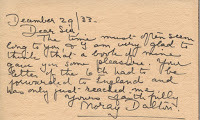 December 29/33.
Dear Sir
The time must often seem
long to you & I am very glad to
think that a book of mine
gave you some pleasure. Your
letter of the 6th had to be
forwarded to England and
has only just reached me.
Yours faithfully
Moray Dalton